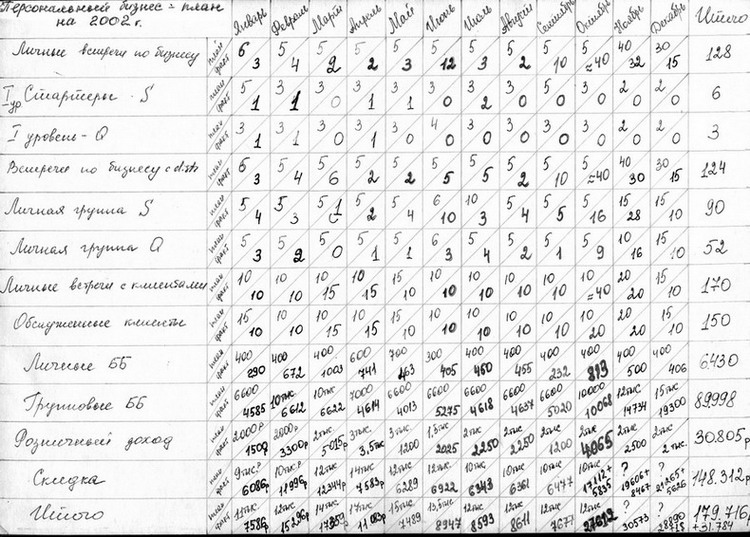 Персональный бизнес-план на 2002 г. Январь Февраль Март Апрель Май Июнь Июль Август Сентябрь Октябрь Ноябрь Декабрь Итого
Личные встречи по бизнесу план факт 6 3 5 4 5 2 5 2 5 3 5 12 5 3 5 2 5 10 5 ≈40 40 32 30 15 128
I ур Стартеры - S план факт 5 1 3 1 3 0 3 1 3 1 3 0 3 2 3 0 5 0 3 0 2 0 2 0 6
I уровень - Q план факт 3 1 3 1 3 0 3 1 3 0 4 0 3 0 3 0 3 0 3 0 2 0 2 0 3
Встречи по бизнесу с план факт 6 3 5 4 5 6 5 2 5 2 5 5 5 5 5 2 5 10 5 ≈40 40 30 30 15 124
Личная группа S план факт 5 4 5 3 5 5 2 5 4 6 10 10 3 5 4 5 5 5 16 15 28 15 10 90
Личная группа Q план факт 5 3 5 2 5 0 5 1 5 1 6 3 5 4 5 2 5 1 5 9 10 16 15 10 52
Личные встречи с клиентами план факт 10 10 10 10 10 15 10 15 15 10 10 10 10 10 10 10 10 10 10 ≈40 20 20 15 10 170
Обслуженные клиенты план факт 15 10 10 10 10 15 10 15 15 10 10 10 10 10 10 10 10 10 10 20 20 20 15 10 150
Личные ББ план факт 400 290 400 672 400 1003 600 741 700 463 300 405 400 450 400 455 400 232 400 819 400 500 400 406 6430
Групповые ББ план факт 6600 4585 10тыс 6612 10тыс 6622 7000 4614 6600 4013 6600 5275 6600 4618 6600 4637 6600 5020 10000 10068 12тыс 14734 15тыс 19300 89.998
Розничный доход план факт 2000р 1500 2000р 3300р 2тыс 5015р 3тыс 3,5тыс 3тыс 1200 1,5тыс 2025 2тыс 2250 2тыс 2250 2тыс 1200 2тыс 4065 2тыс 2500 2тыс 2тыс. 30.805р
Скидка план факт 9тыс.р 6086р 10тыс.р 11996р 12тыс 12344р 14тыс 7583р 12тыс 6289 12тыс 6922 10тыс 6343 10тыс 6361 10тыс 6477 10тыс 17112+ 5835 ? 19606+ 8467 ? 21265+ 5626 148.312р
Итого план факт 11тыс 7586р 12тыс 15296р 14тыс 17359р 17тыс 11083р 15тыс 7489 13,5тыс 8947 12тыс 8593 12тыс 8611 12тыс 7677 12тыс 27612 ? 30573 ? 28890 179.716р +31.784